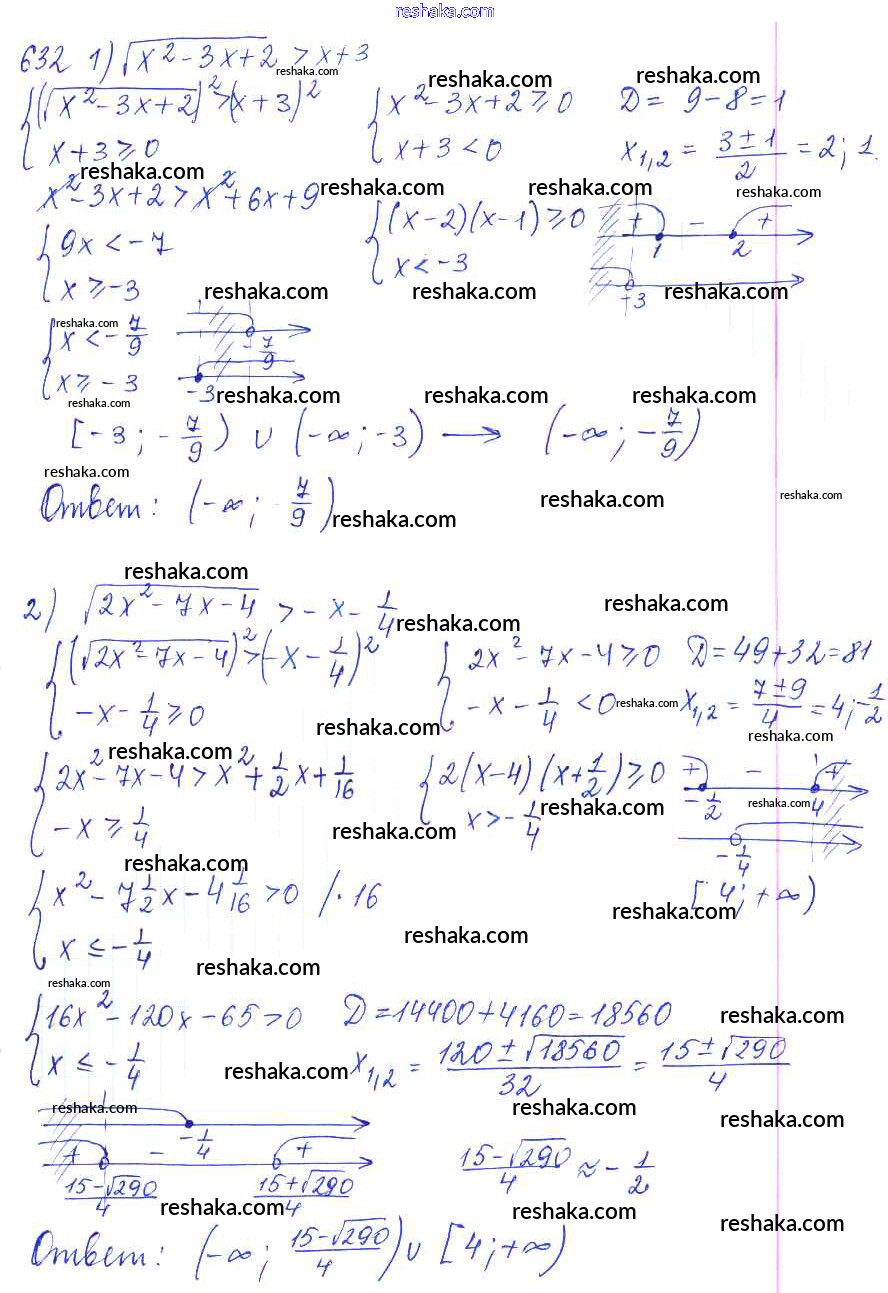 reshaka.com
632 1) √(x² - 3x + 2) > x + 3
reshaka.com
{ (√(x² - 3x + 2))² > (x + 3)²
x + 3 ≥ 0
{ x² - 3x + 2 ≥ 0
x + 3 < 0
reshaka.com reshaka.com
D = 9 - 8 = 1
x₁,₂ = (3 ± 1)/2 = 2; 1.
reshaka.com reshaka.com reshaka.com reshaka.com
x² - 3x + 2 > x² + 6x + 9
{ 9x < -7
x ≥ -3
{ (x - 2)(x - 1) ≥ 0
x < -3
+ - +
1 2
+3
reshaka.com reshaka.com reshaka.com
reshaka.com
{ x < -7/9
x ≥ -3
-7/9
-3
reshaka.com reshaka.com reshaka.com reshaka.com
[-3; -7/9) ∪ (-∞; -3) → (-∞; -7/9)
reshaka.com
Ответ: (-∞; -7/9)
reshaka.com reshaka.com reshaka.com
reshaka.com
2) √(2x² - 7x - 4) > -x - 1/4
reshaka.com reshaka.com
{ (√(2x² - 7x - 4))² > (-x - 1/4)²
-x - 1/4 ≥ 0
{ 2x² - 7x - 4 ≥ 0
-x - 1/4 < 0
D = 49 + 32 = 81
x₁,₂ = (7 ± 9)/4 = 4; -1/2
reshaka.com reshaka.com reshaka.com
reshaka.com
{ 2x² - 7x - 4 > x² + 1/2x + 1/16
-x ≥ 1/4
{ 2(x - 4)(x + 1/2) ≥ 0
x > -1/4
+ - +
-1/2 4
-1/4
reshaka.com reshaka.com reshaka.com
reshaka.com
{ x² - 7 1/2x - 4 1/16 > 0 /·16
x ≤ -1/4
[4; +∞)
reshaka.com
reshaka.com
reshaka.com
reshaka.com
{ 16x² - 120x - 65 > 0
x ≤ -1/4
D = 14400 + 4160 = 18560
reshaka.com
x₁,₂ = (120 ± √18560)/32 = (15 ± √290)/4
reshaka.com
reshaka.com reshaka.com reshaka.com
-1/4
+ - +
(15 - √290)/4 (15 + √290)/4
(15 - √290)/4 ≈ -1/2
reshaka.com reshaka.com reshaka.com
Ответ: (-∞; (15 - √290)/4) ∪ [4; +∞)